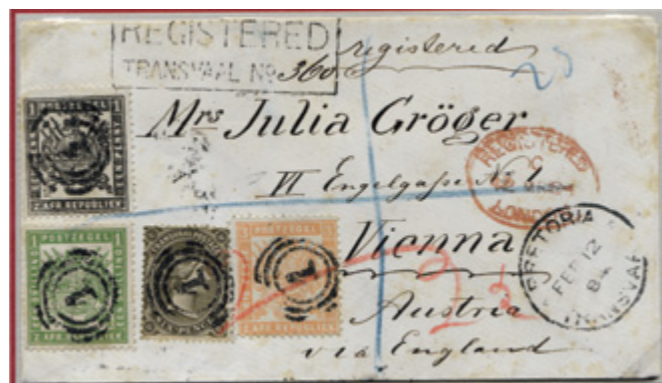 REGISTERED
TRANSVAAL No 360
registered
Mrs Julia Gröger
VI Engelgasse No 1
Vienna
Austria
via England
REGISTERED
LONDON
PRETORIA
FEB 12
84
TRANSVAAL
1 POSTZEGEL 1
Z. AFR. REPUBLIEK
1 POSTZEGEL 1
Z. AFR. REPUBLIEK
1
SIX PENCE
POSTZEGEL
Z. AFR. REPUBLIEK
1